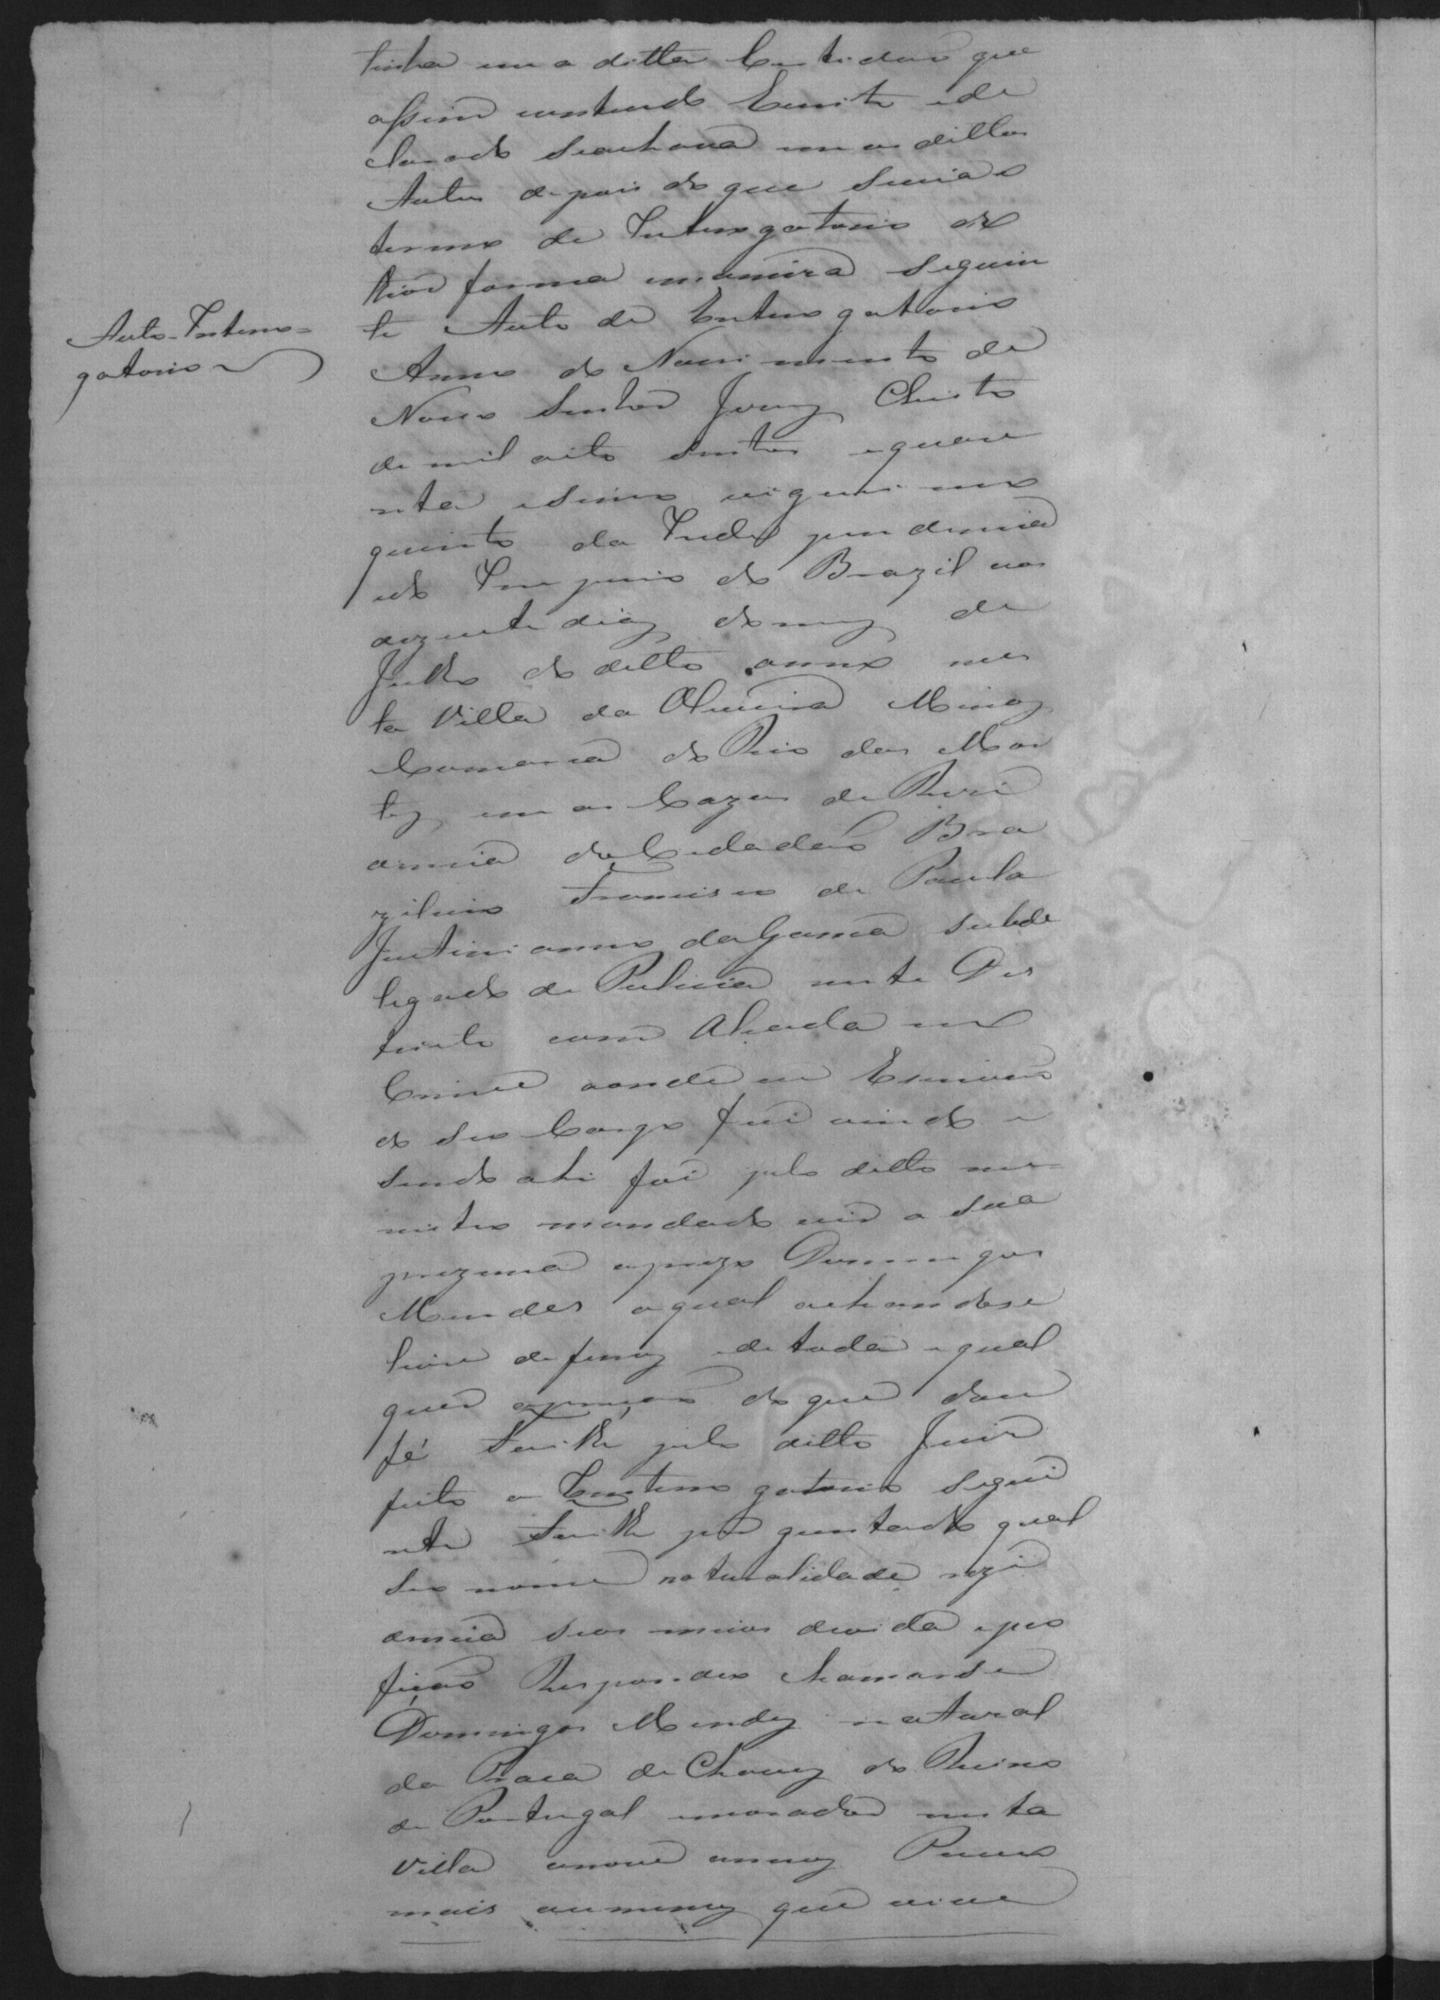 tinha em a ditta Certidaõ que
assim contendo Escrito e de
clarado se achava em os dittos
Autos depois do que se via o
termo de Interogatorio do
theor forma e maneira seguin
Auto Interro=
gatorio
te Auto de Enterogatorio
Anno do Nascimento de
Nosso Senhor Jesuz Christo
de mil oito sentos e quare
nta e seiis vigessimo
quinto da Independencia
e do Imperio do Brazil aos
dezasete diaz do mez de
Julho do ditto anno nes
ta Villa da Oliveira Minaz
Comarca do Rio das Mor
tez em as Cazas de Rezi
dencia do Cidadaõ Bra
zileiro Francisco de Paula
Justinianno da Gama Subde
legado de Policia neste Des
tricto com Alsada no
Crime aonde eu Escrivaõ
do seo Cargo fui vindo e
sendo ahi foi pelo ditto me
nistro mandado vir a sua
prezenca o prezo Domingos
Mendes o qual achandose
livre de ferroz e de toda e qual
quer opressaõ do que dou
fé Foi lhe pelo ditto Juiz
feito o Enterogatorio segui
nte Foi lhe perguntado qual
seo nome naturalidade rezi
dencia seos meios de vida e pro
fiçaõ Respondeo chamarse
Domingos Mendez natural
da Praca de Chavez do Reino
de Portugal e morador nesta
Villa a nove annoz Pouco
mais ou menoz que vive